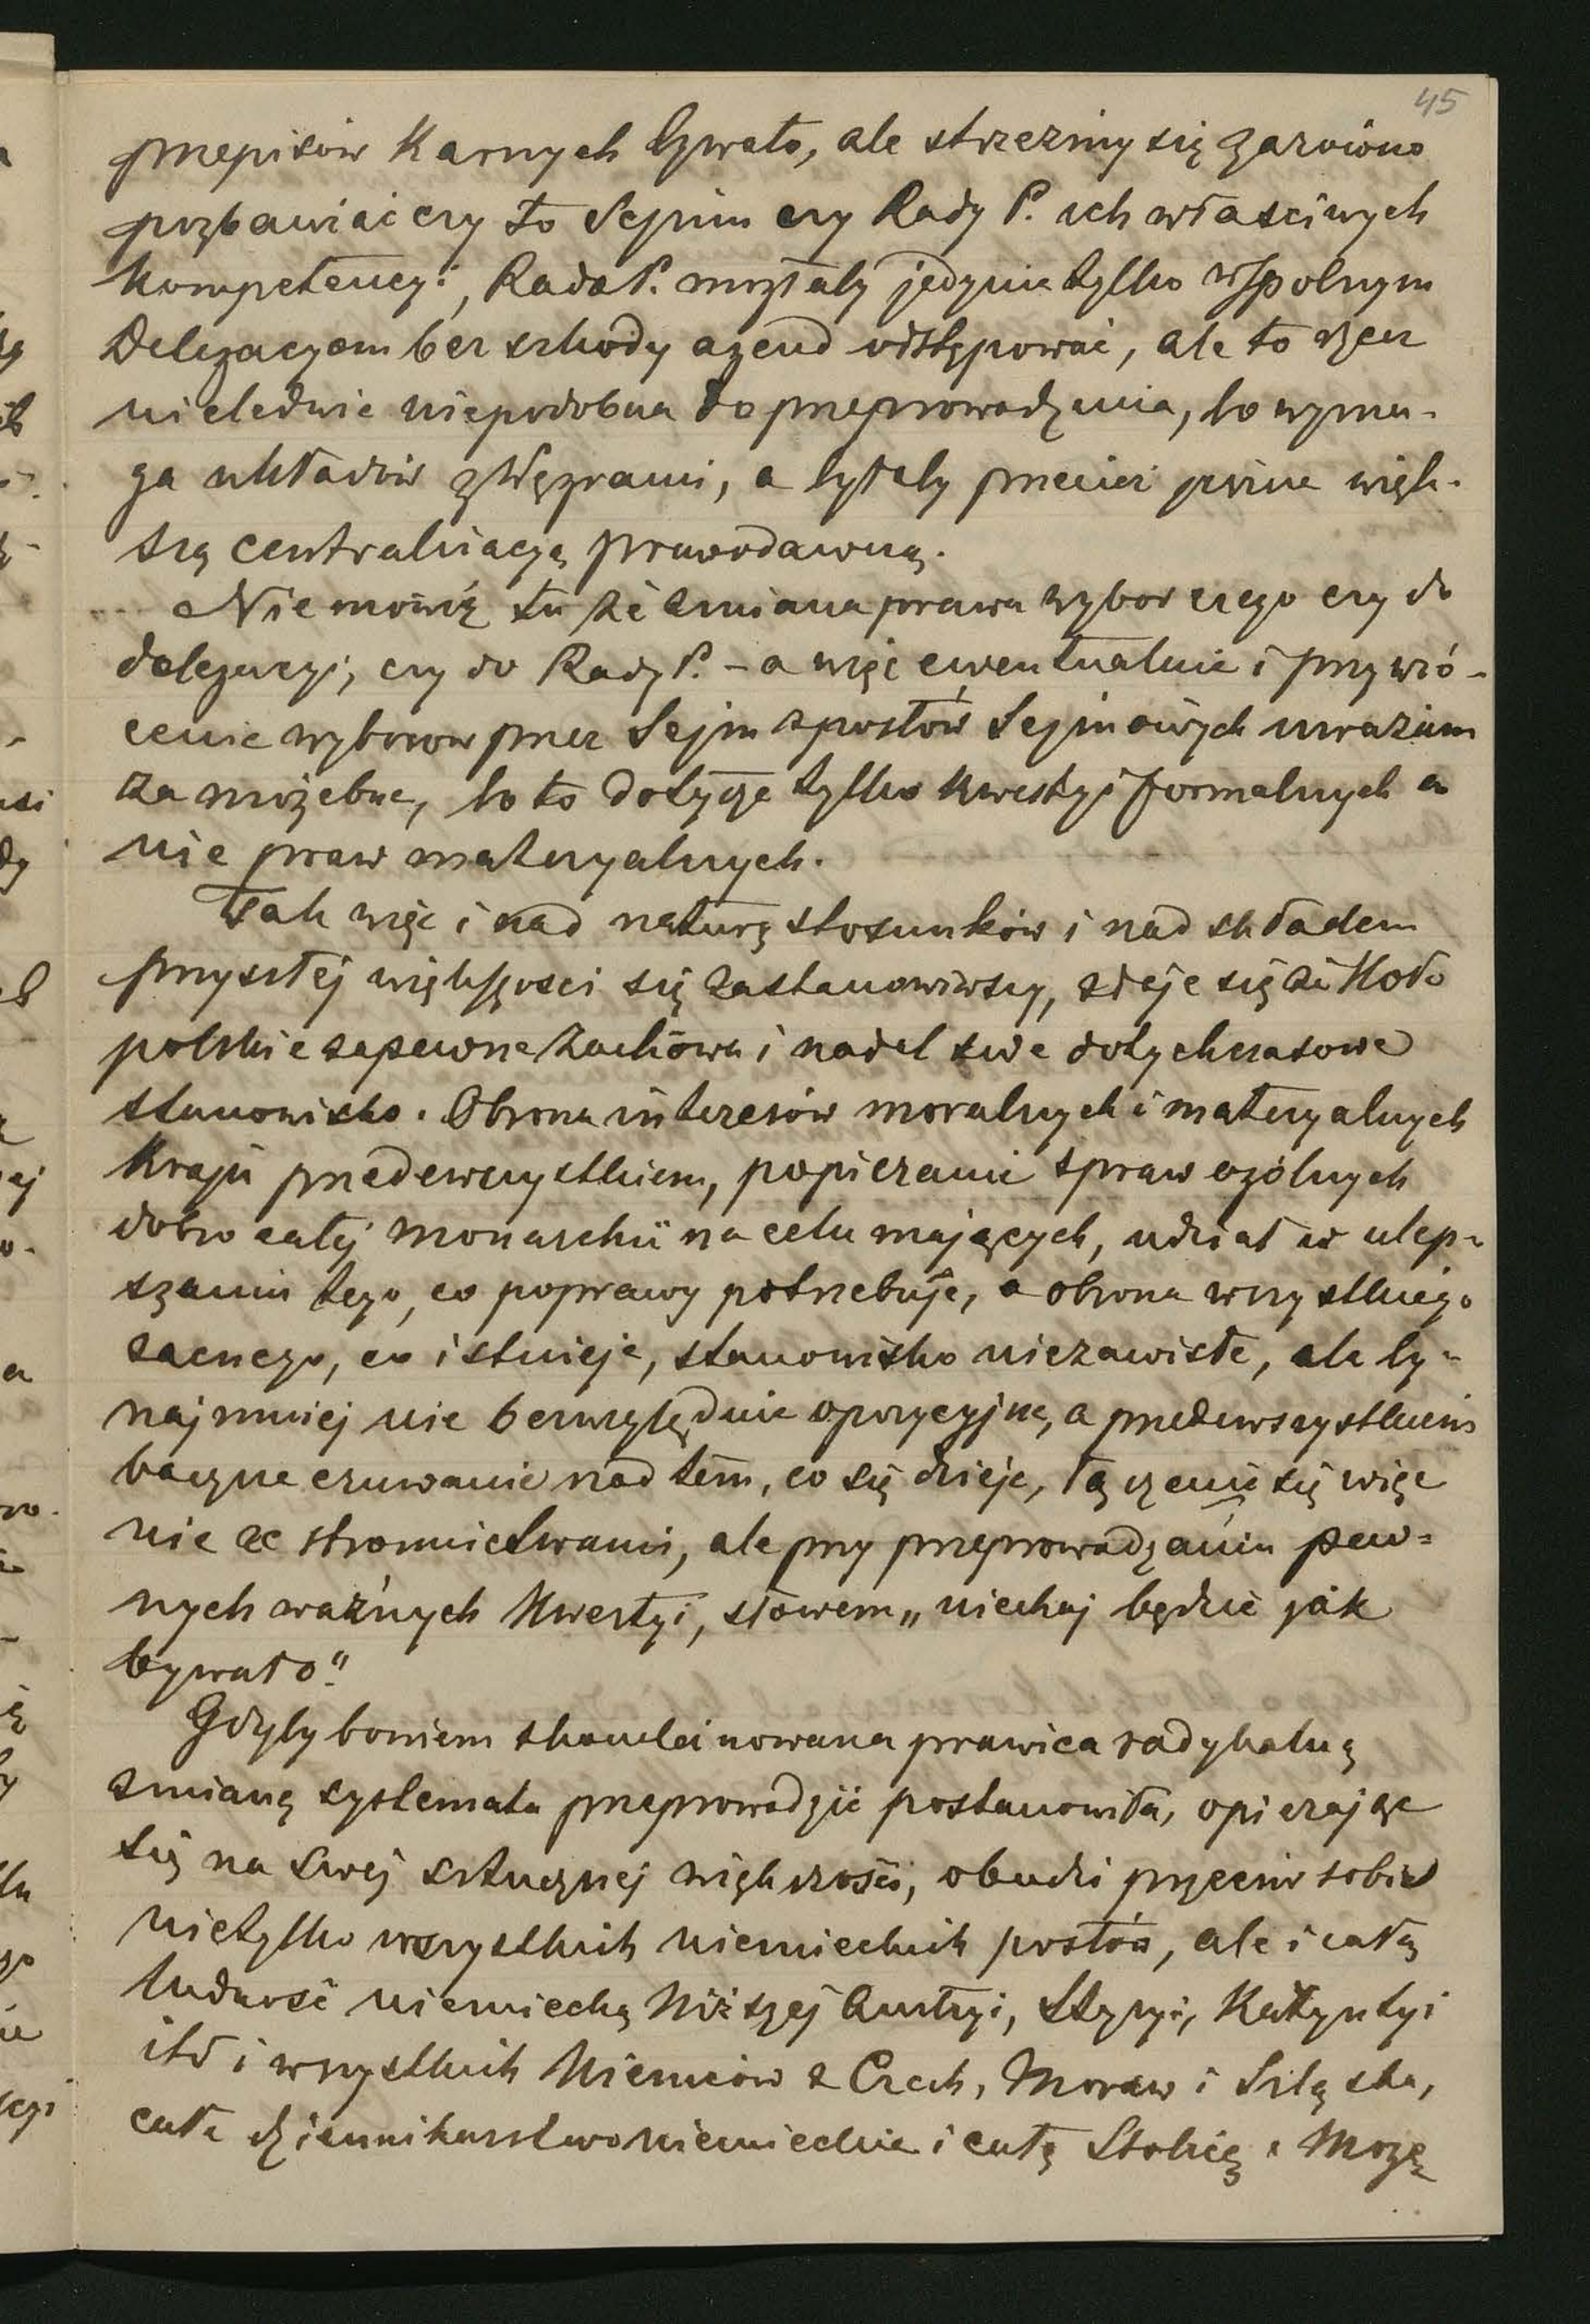 45
przepisów karnych bywało, ale strzeżmy się zarówno
pozbawiać czy to Sejm czy Rady P. ich właściwych
kompetencyi, Rada P. mogłaby jedynie tylko wspólnym
Delegacyom bez szkody agend odstępować, ale to rzecz
nieledwie niepodobna do przeprowadzenia, bo wyma-
ga układów z Węgrami, a byłaby przecież pewne więk-
szą centralizacyą prawodawczą.
Nie mówię tu że zmiana prawa wyborczego czy do
delegacyi, czy do Rady P. – a więc ewentualnie i przywró-
cenie wyborów przez Sejm z posłów Sejmowych uważam
za możebne, bo to dotyczy tylko kwestyi formalnych a
nie praw materyalnych.
Tak więc i nad naturą stosunków i nad składem
przyszłej większości się zastanowiwszy, zdaje się że Koło
polskie zapewne zachowa i nadal swe dotychczasowe
stanowisko. Obrona interesów moralnych i materyalnych
kraju przedewszystkiem, popieranie spraw ogólnych
dobro całej monarchii na celu mających, udział w ulep-
szaniu tego, co poprawy potrzebuje, a obrona wszystkiego
zacnego, co istnieje, stanowisko niezawisłe, ale by-
najmniej nie bezwzględnie opozycyjne, a przedewszystkiem
baczne czuwanie nad tem, co się dzieje, łączenie się więc
nie ze stronnictwami, ale przy przeprowadzaniu pew-
nych ważnych kwestyi, słowem „niechaj będzie jak
bywało".
Gdyby bowiem skoncentrowana prawica radykalną
zmianę systemata przeprowadzić postanowiła, opierając
się na swej sztucznej większości, obudzi przeciw sobie
nietylko wszystkich niemieckich posłów, ale i całą
ludność niemiecką Niższej Austryi, Styryi, Karyntyi
itd i wszystkich Niemców z Czech, Moraw i Szląska,
całe dziennikarstwo niemieckie i całą Stolicę. Mogą